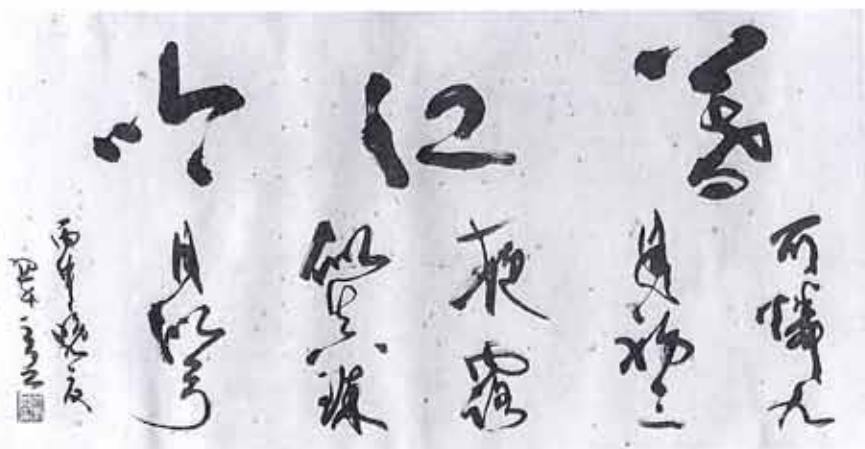 暮江吟
可憐九
月初三
夜露
似真珠
月似弓
丙 晚夏